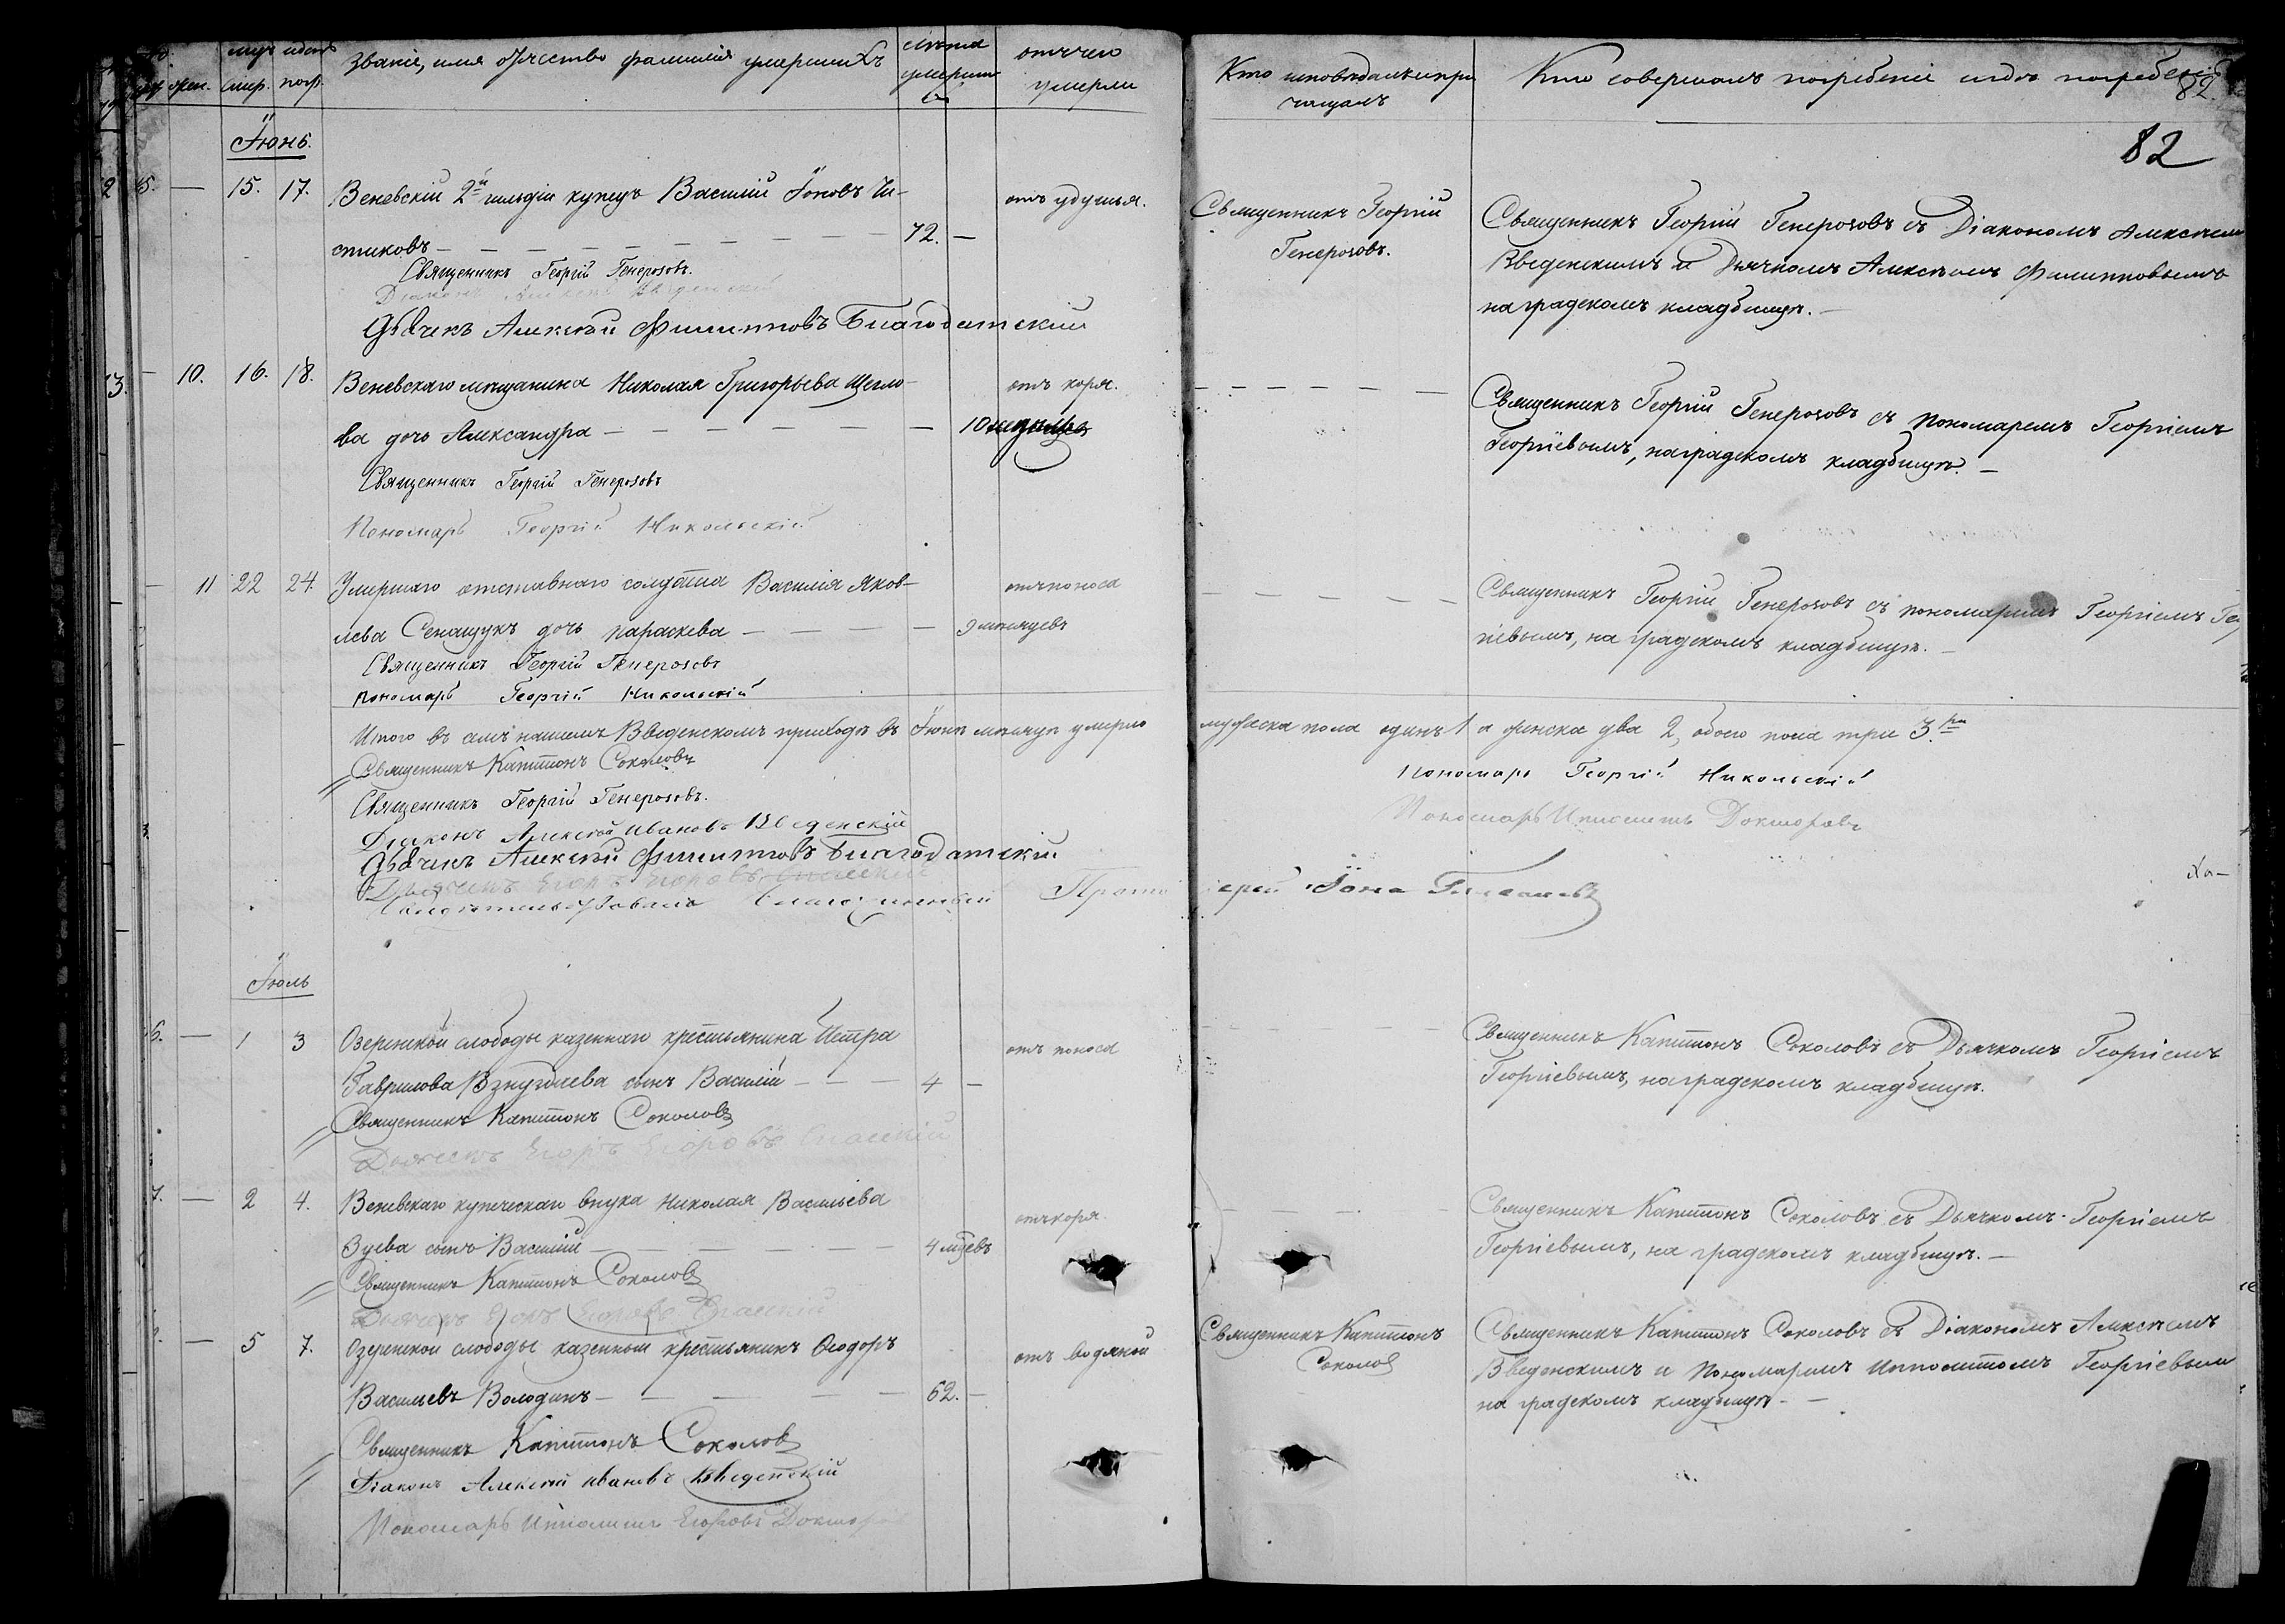 муж. жен.
мѣс. и день
смер. погр.
Званіе, имя отчество фамилія умершихъ
лѣта умершихъ
отъ чего умерли
Кто исповѣдалъ и при-
чащалъ
Кто совершалъ погребеніе и гдѣ погребены
82.
82
Іюнь.
5. — 15. 17. Веневскій 2й гильдіи купецъ Василій Іоновъ Чи- отъ удушья.
стиковъ — 72. —
Священникъ Георгій Генерозовъ.
Діаконъ Алексей Введенскій
Дьячекъ Алексѣй Филипповъ Благодатскій
Священникъ Георгій
Генерозовъ.
Священникъ Георгій Генерозовъ съ Діакономъ Алексѣем
Введенскимъ и Дьячкомъ Алексѣемъ Филипповымъ
на градскомъ кладбищѣ. —
3. — 10. 16. 18. Веневскаго мѣщанина Николая Григорьева Щегло- отъ коря.
ва дочь Александра — 10
Священникъ Георгій Генерозовъ
Пономарь Георгій Никольскій
Священникъ Георгій Генерозовъ съ пономаремъ Георгіемъ
Георгіевымъ, на градскомъ кладбищѣ. —
— 11 22 24. Умершаго отставнаго солдата Василія Яков- отъ поноса
лева Сенащукъ дочь Параскева — 9 мѣсяцевъ
Священникъ Георгій Генерозовъ
Пономарь Георгій Никольскій
Священникъ Георгій Генерозовъ съ пономаремъ Георгіемъ Геор
гіевымъ, на градскомъ кладбищѣ. —
Итого въ семъ нашемъ Введенскомъ приходѣ въ Іюнѣ мѣсяцѣ умерло мужеска пола одинъ 1 а женска два 2, обоего пола три 3.ри
Священникъ Капитонъ Соколовъ
Священникъ Георгій Генерозовъ.
Діаконъ Алексей Ивановъ Введенскій
Дьячекъ Алексѣй Филипповъ Благодатскій
Дьячекъ Егоръ Егоровъ Спасскій
Пономарь Георгій Никольскій
Пономарь Ипполитъ Докторовъ
Свидѣтельствовалъ Благочинный Протоіерей Іона
Іюль
6. — 1 3 Озеренской слободы казеннаго крестьянина Петра отъ поноса
Гаврилова Взнуздаева сынъ Василій — 4 —
Священникъ Капитонъ Соколовъ
Дьячекъ Егоръ Егоровъ Спасскій
Священникъ Капитонъ Соколовъ съ Дьячкомъ Георгіемъ
Георгіевымъ, на градскомъ кладбищѣ.
7. — 2 4. Веневскаго купеческаго внука Николая Васильева отъ коря
Зуева сынъ Василій — 4 мцевъ
Священникъ Капитонъ Соколовъ
Дьячекъ Егоръ Егоровъ Спасскій
Священникъ Капитонъ Соколовъ съ Дьячкомъ Георгіемъ
Георгіевымъ, на градскомъ кладбищѣ. —
— 5 7. Озеренской слободы казенный крестьянинъ Ѳеодоръ отъ водяной
Васильевъ Володинъ — 62. —
Священникъ Капитонъ Соколовъ
Діаконъ Алексей Ивановъ Введенскій
Пономарь Ипполитъ Егоровъ Докторовъ
Священникъ Капитонъ
Соколовъ
Священникъ Капитонъ Соколовъ съ Діакономъ Алексѣемъ
Введенскимъ и Пономаремъ Ипполитомъ Георгіевым
на градскомъ кладбищѣ — —